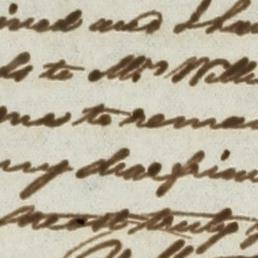 ined and I ha
ds to Mrs Willi
me to remain
my dear friend
most truly y